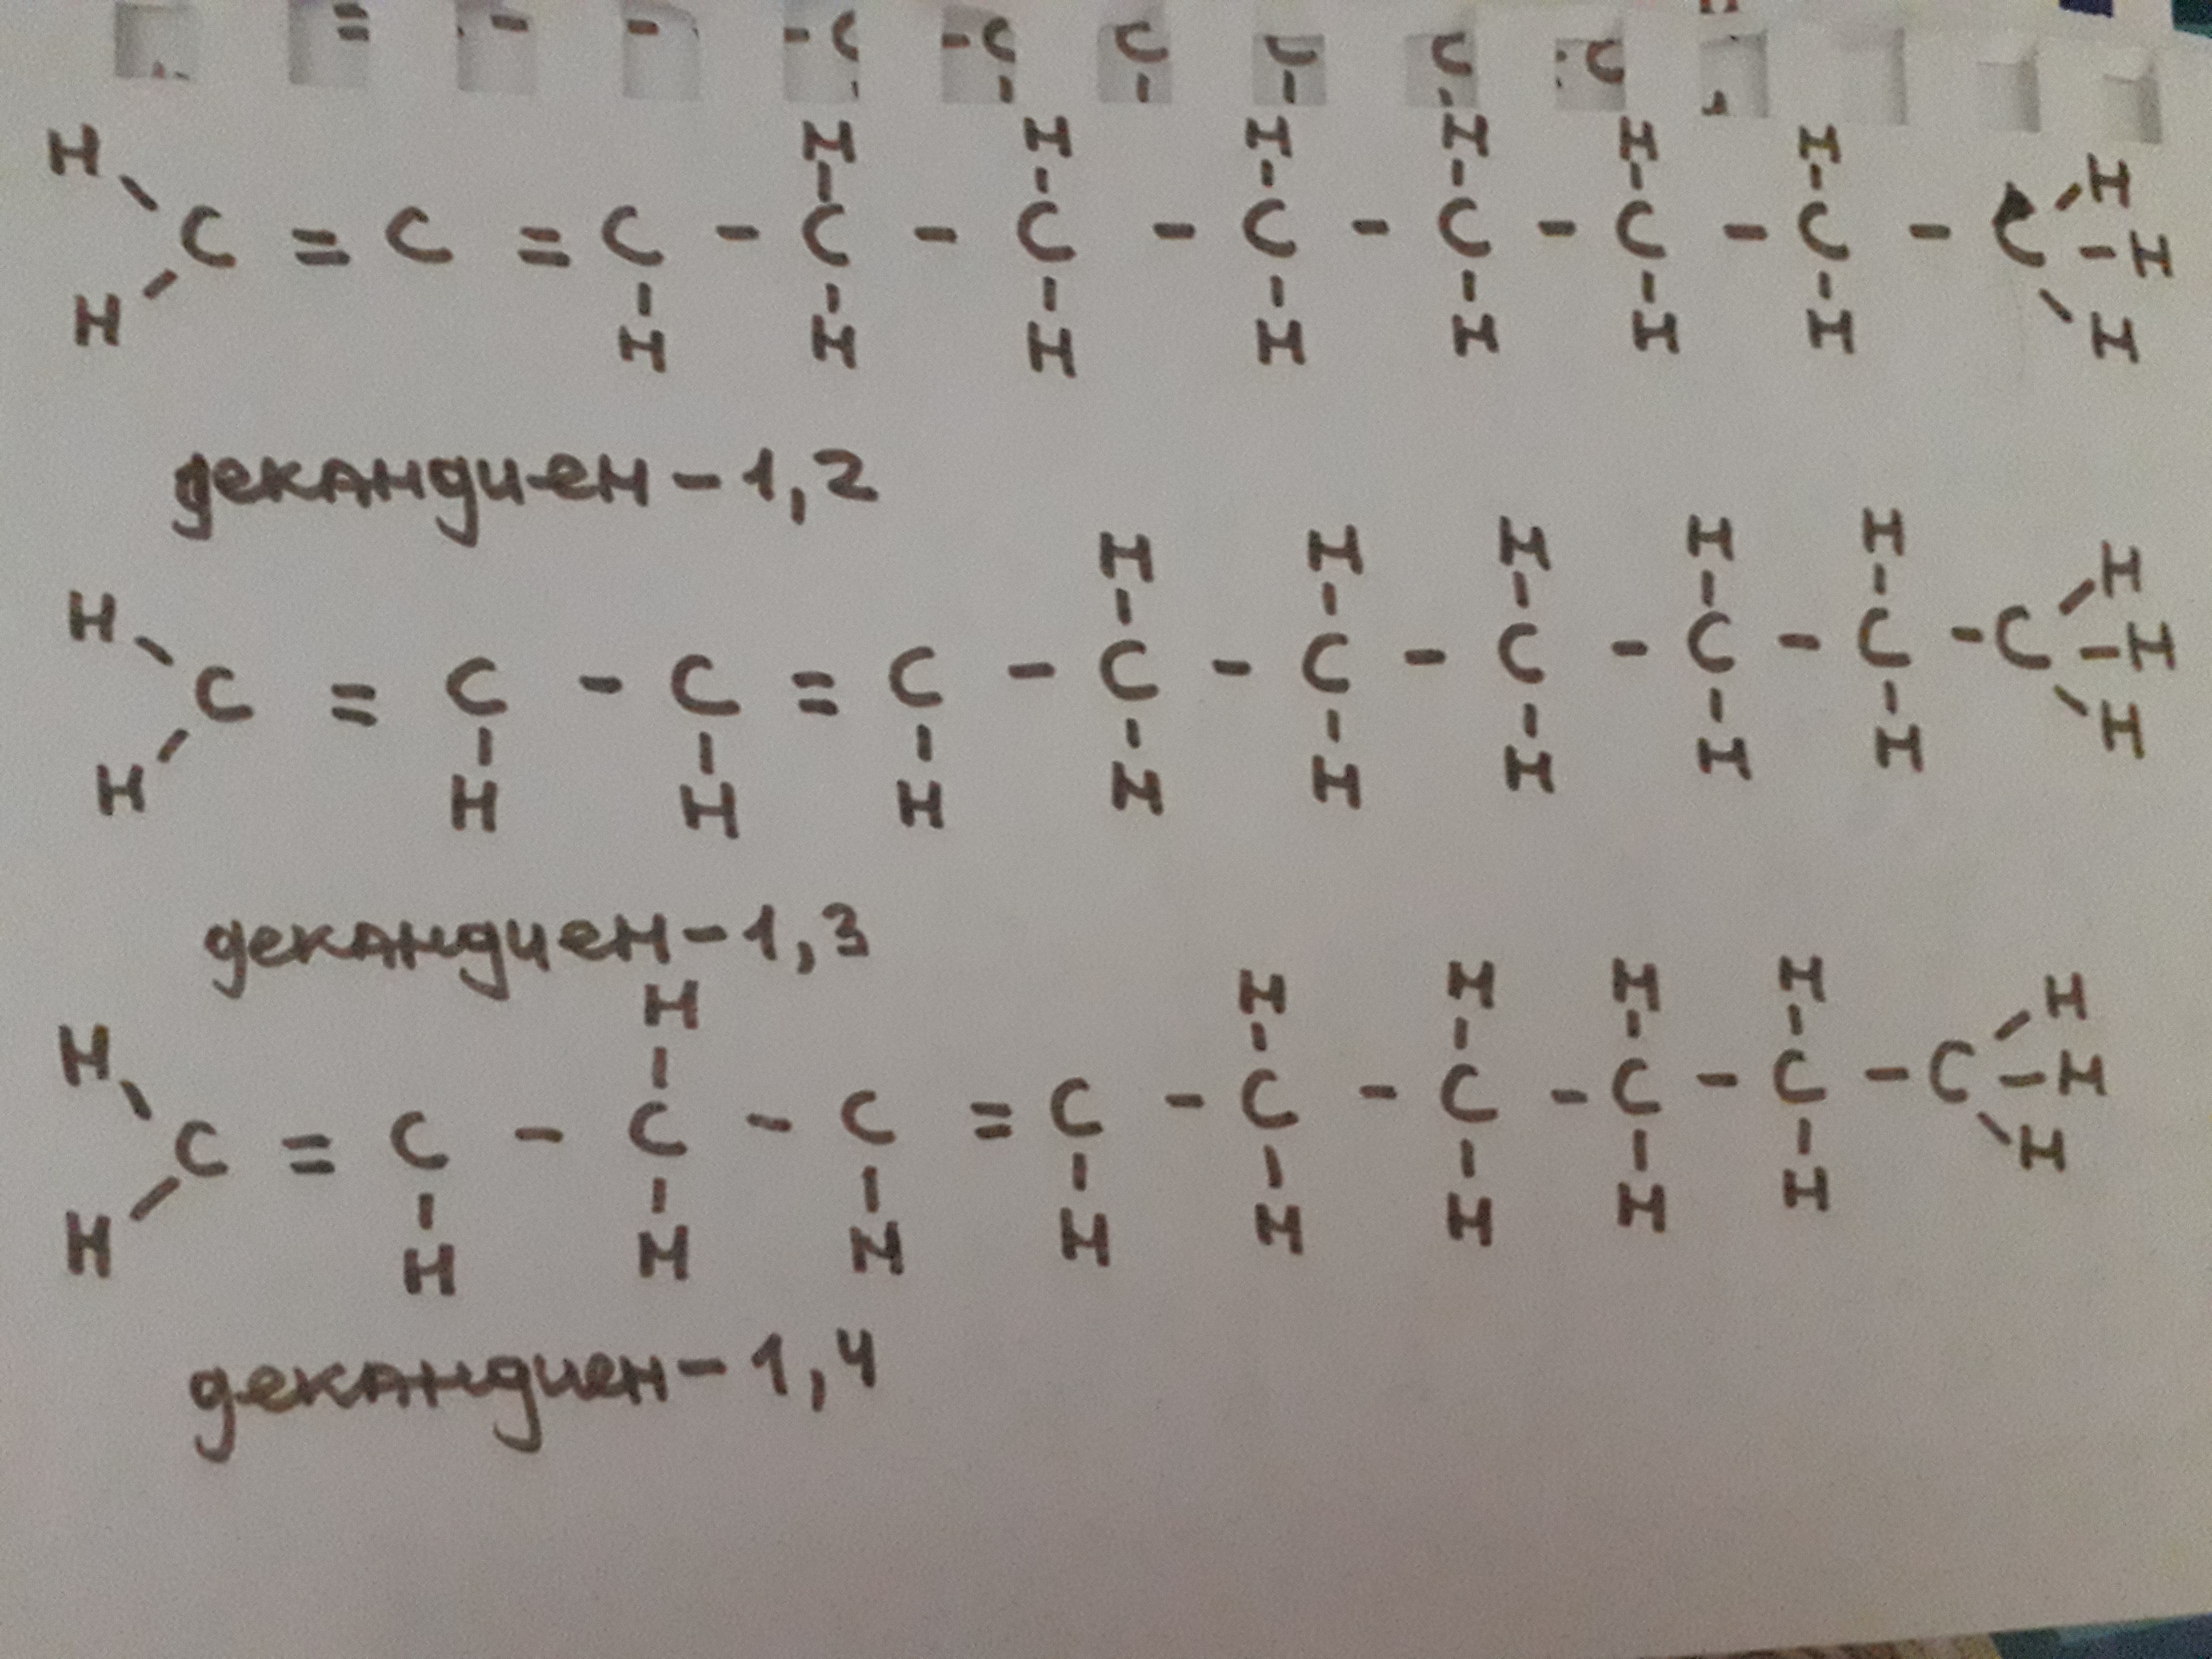 H H H H H H H H
H - C = C = C - C - C - C - C - C - C - C - H
H H H H H H H H H
декандиен-1,2
H H H H H H H
H - C = C - C = C - C - C - C - C - C - C - H
H H H H H H H H H H
декандиен-1,3
H H H H H H H
H - C = C - C - C = C - C - C - C - C - C - H
H H H H H H H H H H
декандиен-1,4